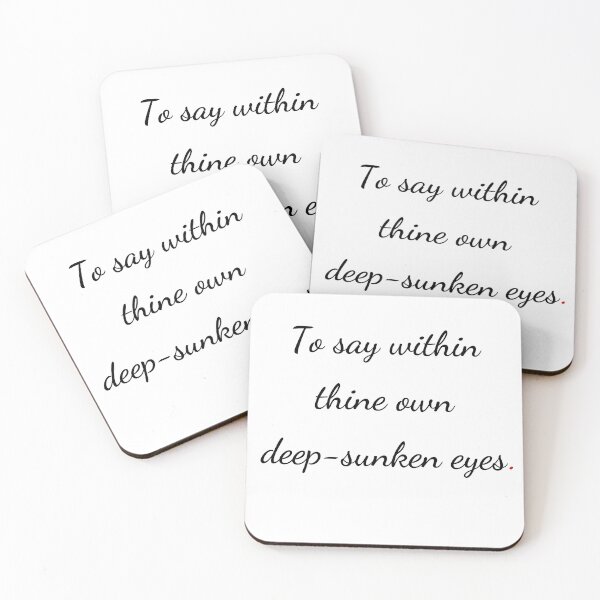 To say within
thine own
n e
To say within
thine own
deep-sunken eyes.
To say within
thine own
deep-sunken
To say within
thine own
deep-sunken eyes.